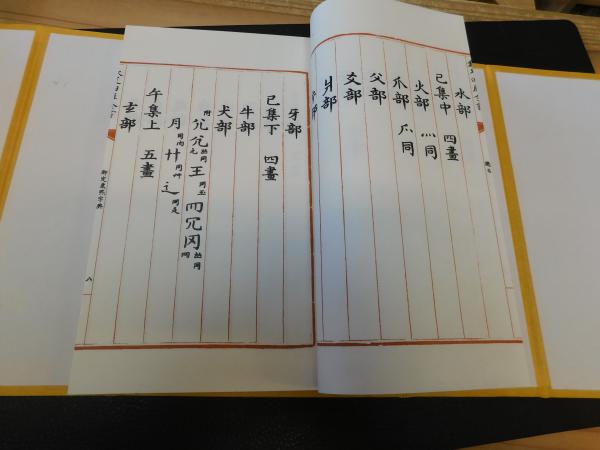 水部
巳集中 四畫
火部 灬同
爪部 爫同
父部
爻部
爿部
牙部
巳集下 四畫
牛部
犬部
附 尣 王同玉
月同肉 艹同艸 辶同辵
午集上 五畫
玄部
御定康熙字典
八